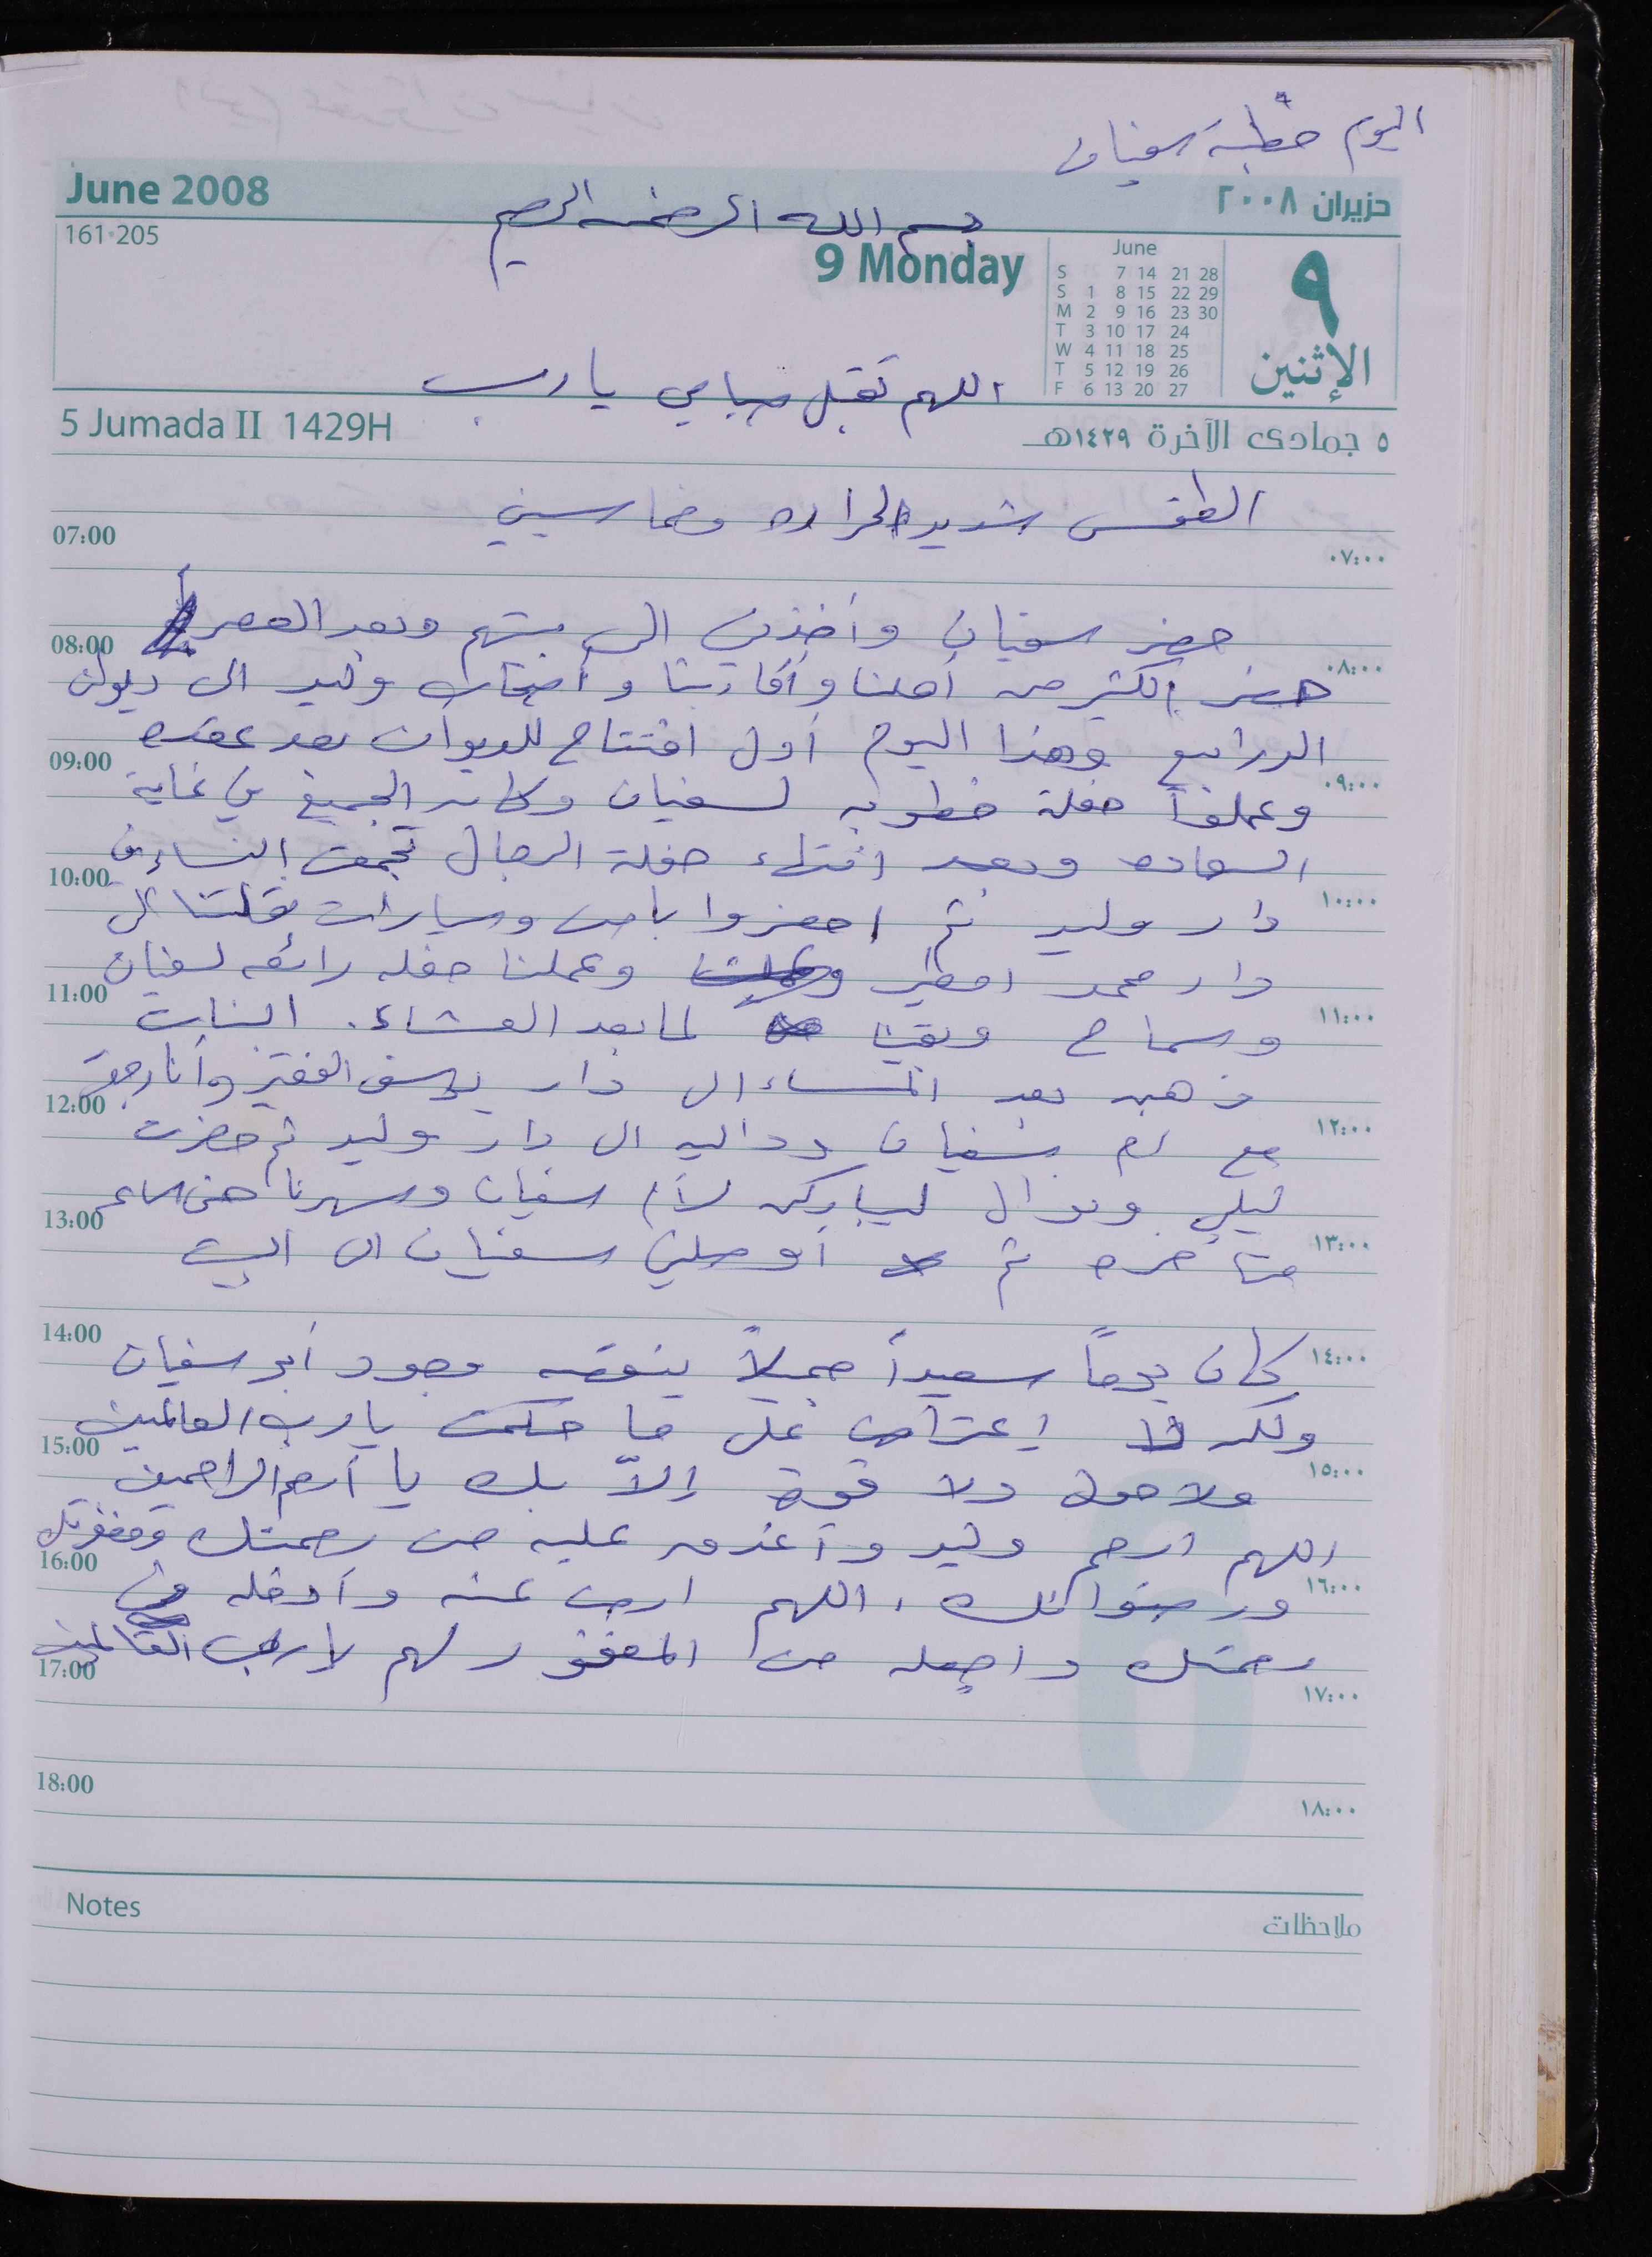 اليوم خطبة سفيان
June 2008
حزيران ٢٠٠٨
بسم الله الرحمن الرحيم
161·205
9 Monday
June
S 7 14 21 28
S 1 8 15 22 29
M 2 9 16 23 30
T 3 10 17 24
W 4 11 18 25
T 5 12 19 26
F 6 13 20 27
٩
الإثنين
اللهم تقبل صيامي يا رب
5 Jumada II 1429H
٥ جمادى الآخرة ١٤٢٩هـ
الطقس شديد الحراره وخماسيني
07:00 ٠٧:٠٠
حضر سفيان وأخذني الى بيتهم وبعد العصر
08:00 ٠٨:٠٠
حضر الكثير من أهلنا وأقاربنا و أصحاب وليد الى ديوان
الدرابيع وهذا اليوم أول افتتاح للديوان بعد عقده
09:00 ٠٩:٠٠
وعملوا حفلة خطوبه لسفيان وكان الجميع في غاية
السعاده وبعد انتهاء حفلة الرجال تجمعت النساء في
10:00 ١٠:٠٠
دار وليد ثم احضروا باص وسيارات نقلتنا الى
دار محمد وعملنا حفله رائعه لسفيان
11:00 ١١:٠٠
وسماح وبقينا لما بعد العشاء . البنات
ذهبن بعد المساء الى دار يوسف الفقير وأنا رجعت
12:00 ١٢:٠٠
مع ام سفيان وداليه الى دار وليد ثم حضرت
ليلى ونوال ليباركن لأم سفيان وسهرنا حتى ساعه
13:00 ١٣:٠٠
متأخره ثم أوصلني سفيان الى البيت
14:00 ١٤:٠٠
كان يوماً سعيداً جميلاً ينقصه وجود أبو سفيان
ولكن لا إعتراض على ما حكمت يا رب العالمين
15:00 ١٥:٠٠
ولا حول ولا قوة إلاّ بك يا أرحم الراحمين
اللهم ارحم وليد وأغدق عليه من رحمتك ومغفرتك
16:00 ١٦:٠٠
ورضوانك ، اللهم ارض عنه وأدخله في
رحمتك واجعله من المغفور لهم يا رب العالمين
17:00 ١٧:٠٠
18:00 ١٨:٠٠
6
Notes
ملاحظات